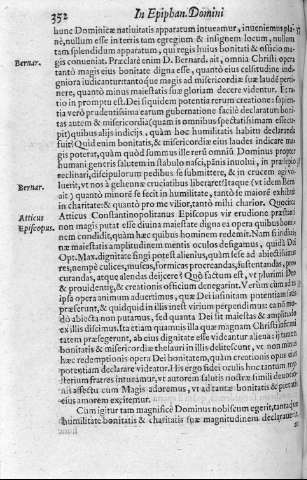 352
In Epiphan. Domini
hunc Dominicæ natiuitatis apparatum intueamur, inueniemus
nè, nullum esse in terris tam egregium & insignem locum, nullum
tam splendidum apparatum, qui regis huius bonitati & officio ma-
Bernar.
gis conueniat. Præclarè enim D. Bernard. ait, omnia Christi opera
tantò magis eius bonitate digna esse, quantò eius celsitudine indi-
gniora iudicantur: tantoque magis ad misericordiæ suæ laudé perti-
nere, quantò minus maiestatis suæ gloriam decere videntur. Et ra-
tio in promptu est. Dei siquidem potentia rerum creatione: sapien-
tia verò prudentissima earum gubernatione facilè declaratur: boni-
tas autem & misericordia (quam in omnibus spectatissimam esse cu-
pit) quibus alijs indicijs, quàm hoc humilitatis habitu declarari
fuit? Quid enim bonitatis, & misericordiæ eius laudes indicare ma-
gis poterat, quàm quòd summus ille rerũ omniũ Dominus propter
humani generis salutem in stabulo nasci, pānis inuolui, in præsepio
reclinari, discipulorum pedibus se submittere, & in crucem agi vo-
Bernar.
luerit, vt nos à gehennæ cruciatibus liberaret? Itaque (vt idem Bern.
ait) quantò minorē se fecit in humilitate, tantò se maiorē exhibuit
in charitate: & quantò pro me vilior, tantò mihi charior.
Atticus
Episcopus.
Atticus Constantinopolitanus Episcopus vir eruditione præstans
non magis putat esse diuina maiestate digna ea opera quibus homi-
nem condidit, quàm hæc quibus hominem redemit. Nam si in diui-
næ maiestatis amplitudinem mentis oculos defigamus, quid à Deo
Opt. Max. dignitate singi potest alienius, quàm sese ad abiectiores
res, nempè culices, muscas, formicas procreandas, sustentandas,
curandas, atque alendas deijcere? Quò factum est, vt plurimi Deo
& prouidentiæ, & creationis officium denegarint. Verùm cùm ad
ipsa opera animum aduertimus, quæ Dei infinitam potentiam
præferunt, & quidquid in illis inest virium perpendimus: eam
dò abiecta non putamus, sed quanta Dei sit maiestas & amplitudo
ex illis discimus. Ita etiam quamuis illa quæ magnam Christi infirmi-
tatem præseferunt, ab eius dignitate esse videantur aliena: ij tamen
bonitatis & misericordiæ thesauri in illis delitescunt, vt non minus
hæc redemptionis opera Dei bonitatem, quàm creationis opus eius
potentiam declarare videatur. His ergo fidei oculis hoc tantum my-
sterium fratres intueamur, vt autorem salutis nostræ simili
nis affectu cum Magis adoremus, vt ad tantæ bonitatis & pietatis
eius amorem excitemur.
Cum igitur tam magnificè Dominus nobiscum egerit, tantaque
humilitate bonitatis & charitatis suæ magnitudinem